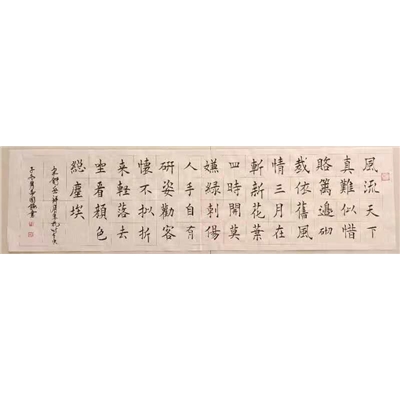 風流天下
真難似惜
路篱邉砌
裁依舊風
情三月在
斬新花葉
四時開莫
嫌綠刺傷
人手自有
研姿勸客
懷不拟折
来輕落去
坐看顔色
総塵埃